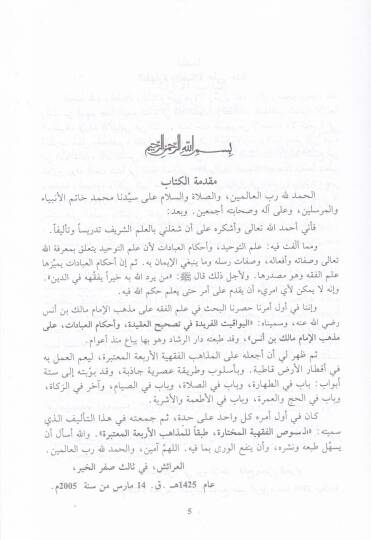 بسم الله الرحمن الرحيم
مقدمة الكتاب
الحمد لله رب العالمين، والصلاة والسلام على سيّدنا محمد خاتم الأنبياء
والمرسلين، وعلى آله وصحابته أجمعين. وبعد:
فأني أحمد الله تعالى وأشكره على أن شغلني بالعلم الشريف تدريساً وتأليفاً.
ومما ألفت فيه: علم التوحيد، وأحكام العبادات لأن علم التوحيد يتعلق بمعرفة الله
تعالى وصفاته وأفعاله، وصفات رسله وما ينبغي الإيمان به. ثم إن أحكام العبادات يميّزها
علم الفقه وهو مصدرها. ولأجل ذلك قال ﷺ: «من يرد الله به خيراً يفقّهه في الدين».
وإنه لا يمكن لأي امرىء أن يقدم على أمر حتى يعلم حكم الله فيه.
وإننا في أول أمرنا حصرنا البحث في علم الفقه على مذهب الإمام مالك بن أنس
رضي الله عنه، وسميناه: «اليواقيت الفريدة في تصحيح العقيدة، وأحكام العبادات، على
مذهب الإمام مالك بن أنس». وقد طبعته دار الرشاد وهو بها يباع منذ أعوام.
ثم ظهر لي أن أجعله على المذاهب الفقهية الأربعة المعتبرة، ليعم العمل به
في أقطار الأرض قاطبة. وبأسلوب وطريقة عصرية جاذبة، وقد بوّبته إلى ستة
أبواب: باب في الطهارة، وباب في الصلاة، وباب في الصيام، وآخر في الزكاة،
وباب في الحج والعمرة، وباب في الأطعمة والأشربة.
كان في أول أمره كل واحد على حدة، ثم جمعته في هذا التأليف الذي
سميته: «النصوص الفقهية المختارة، طبقاً للمذاهب الأربعة المعتبرة». والله أسأل أن
يسهّل طبعه ونشره، وأن ينفع الورى بما فيه. اللهمّ آمين، والحمد لله رب العالمين.
العرائش، في ثالث صفر الخير،
عام 1425هـ. ق. 14 مارس من سنة 2005م.
5